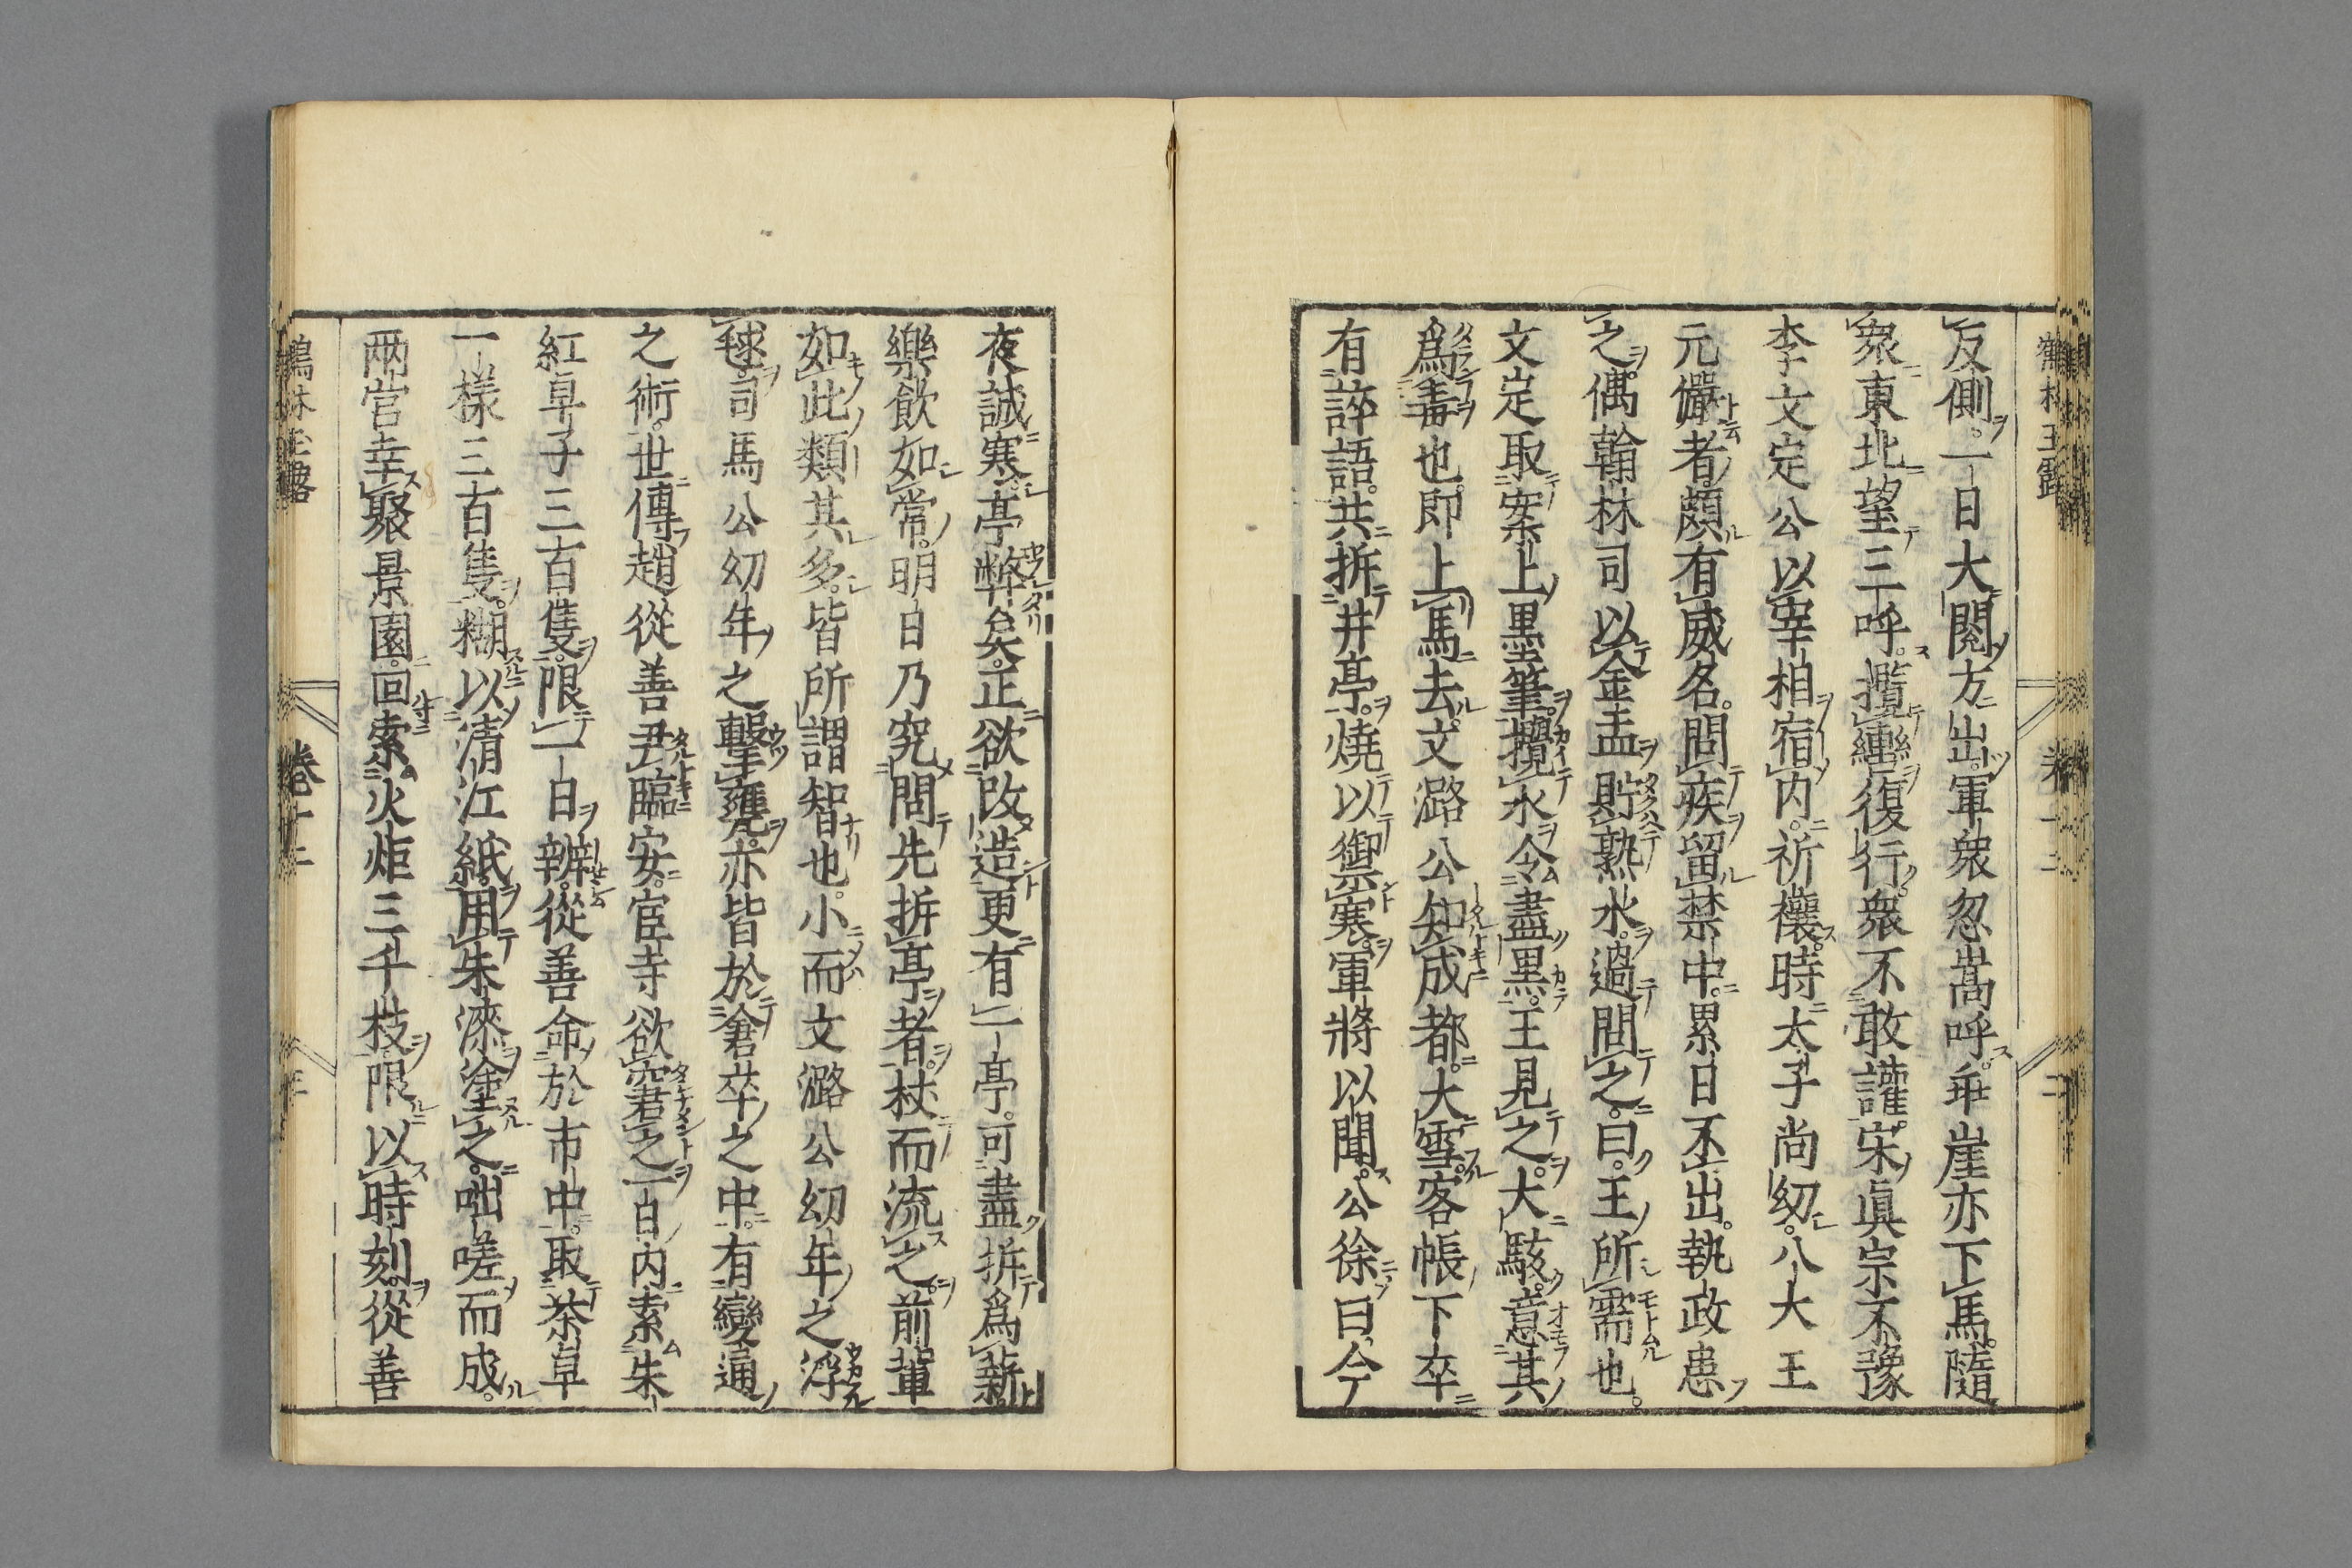 反側。一日大閱方出。軍衆忽嵩呼。乖崖亦下馬。隨
衆東北望三呼。攬轡復行。衆不敢讙。宋眞宗不豫
李文定公以宰相宿內。祈禳。時太子尚幼。八大王
元儼者。頗有威名。問疾留禁中。累日不出。執政患
之。偶翰林司以金盂貯熟水。過問之。曰。王所需也。
文定取案上墨筆。攪水令盡黑。王見之。大駭。意其
爲毒也。即上馬去。文潞公知成都。大雪。客帳下卒
有誶語。共拆井亭。燒以禦寒。軍將以聞。公徐曰。今
夜誠寒。亭弊矣。正欲改造更有一亭。可盡拆爲薪。
樂飲如常。明日乃究問先拆亭者。杖而流之。前輩
如此類其多。皆所謂智也。小而文潞公幼年之浮
毬。司馬公幼年之擊甕。亦皆於倉卒之中。有變通
之術。世傳趙從善尹臨安。宦寺欲窘之。一日內索朱
紅卓子三百隻。限一日辨。從善命於市中。取茶卓
一樣三百隻。糊以清江紙。用朱漆塗之。咄嗟而成。
兩宮幸聚景園。回索火炬三千枝。限以時刻。從善
鶴林玉露
卷十二
二
鶴林玉露
卷十二
三